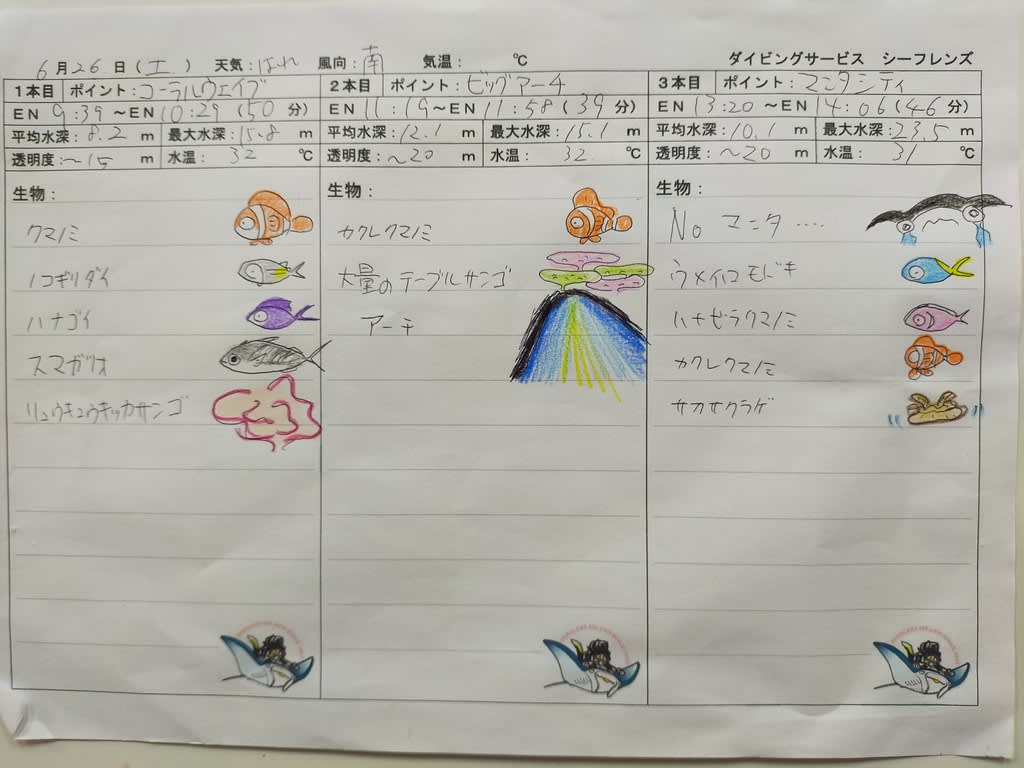 6月26日(土) 天気:はれ 風向:南 気温: ℃ ダイビングサービス シーフレンズ
1本目 ポイント:コーラルウェイブ
EN 9:39 ~EN 10:29 (50 分)
平均水深:8.2 m 最大水深:15.8 m
透明度:~15 m 水温: 32 ℃
生物:
クマノミ
ノコギリダイ
ハナゴイ
スマガツオ
リュウキュウキッカサンゴ
2本目 ポイント:ビッグアーチ
EN 11:19 ~EN 11:58 (39 分)
平均水深:12.1 m 最大水深:15.1 m
透明度:~20 m 水温: 32 ℃
生物:
カクレクマノミ
大量のテーブルサンゴ
アーチ
3本目 ポイント:マンタシティ
EN 13:20 ~EN 14:06 (46 分)
平均水深:10.1 m 最大水深:23.5 m
透明度:~20 m 水温: 31 ℃
生物:
No マンタ ‥‥
ウメイロモドキ
ハナビラクマノミ
カクレクマノミ
サカサクラゲ